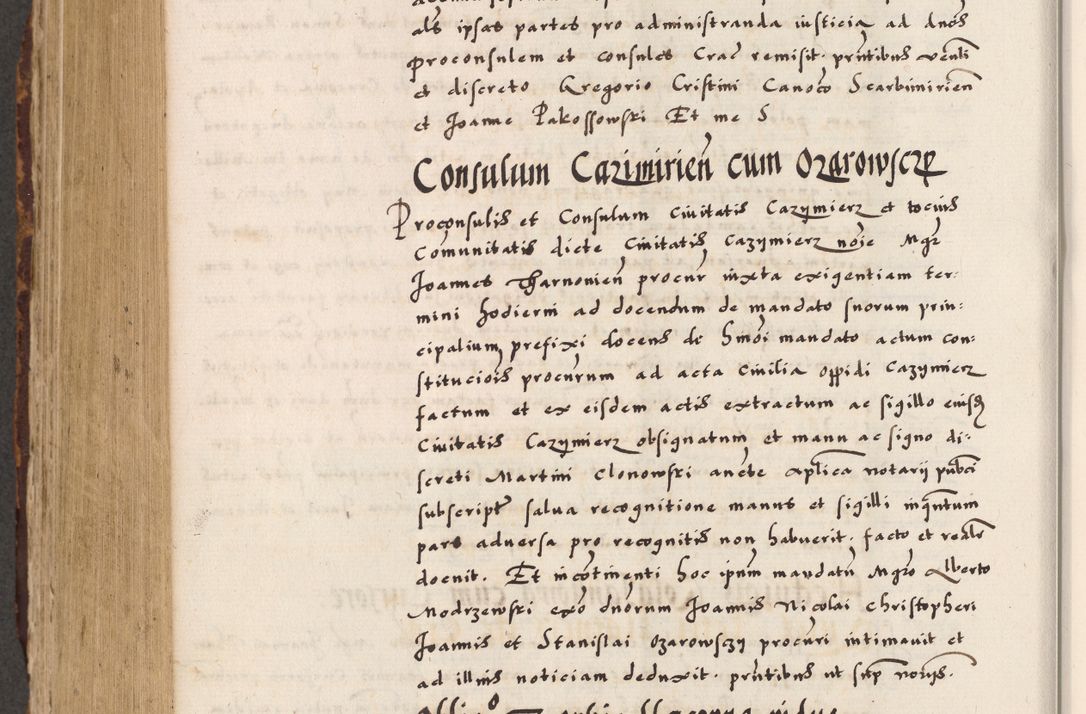 als ipsas partes pro administranda iusticia ad dnos
proconsulem et consules Crac remisit. prntibus venli
et discreto Gregorio Cristini Canoco Scarbimirien
et Joanne Pakossowski Et me S
Consulum Cazimirien cum Ozarowscze
Proconsulis et Consulum Civitatis Cazymierz et tocius
Comunitatis dicte Civitatis Cazymierz noie Mgr
Joannes Tharnonien procur iuxta exigentiam ter:
mini hodierni ad docendum de mandato suorum prin:
cipalium prefixi docens de hmoi mandato actum con:
stituciois procurum ad acta civilia oppidi Cazymierz
factum et ex eisdem actis extractum ac sigillo eiusd
Civitatis Cazymierz obsignatum et manu ac signo di:
screti Martini Clonowski aucte aplica notarij pubci
subscript salva recognitione manus et sigilli inquntum
pars adversa pro recognitis non habuerit. facto et realr
docuit. Et incotinenti hoc ipum mandatu Mgro Alberto
Modrzewski exo dnorum Joannis Nicolai Christopheri
Joannis et Stanislai Ozarowsczy procuri intimavit et
ad illius noticiam deduxit. prntibus ut sup noriis.